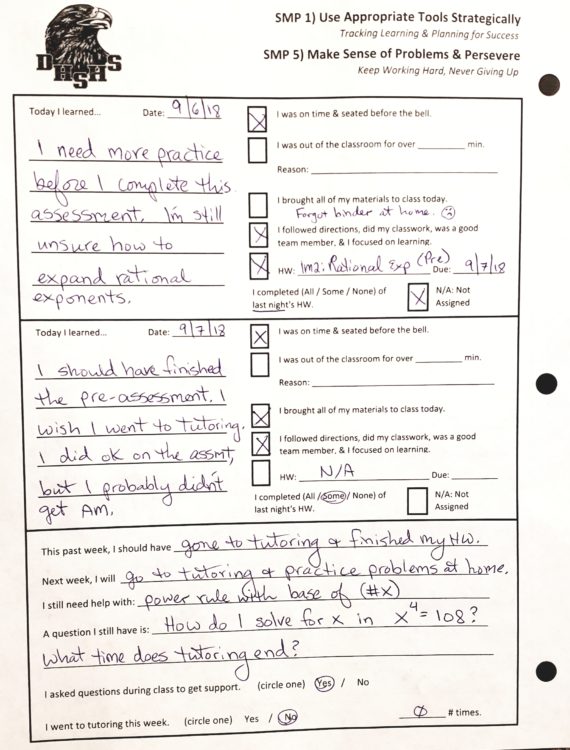 DHSHS
SMP 1) Use Appropriate Tools Strategically
Tracking Learning & Planning for Success
SMP 5) Make Sense of Problems & Persevere
Keep Working Hard, Never Giving Up
Today I learned... Date: 9/6/18
I need more practice
before I complete this
assessment. I'm still
unsure how to
expand rational
exponents.
I was on time & seated before the bell.
I was out of the classroom for over ________ min.
Reason:
I brought all of my materials to class today.
Forgot binder at home. ☹
I followed directions, did my classwork, was a good
team member, & I focused on learning.
HW: Im2: Rational Exp (Pre) Due: 9/7/18
I completed (All / Some / None) of
last night's HW.
N/A: Not
Assigned
Today I learned... Date: 9/7/18
I should have finished
the pre-assessment. I
wish I went to tutoring.
I did ok on the assmt,
but I probably didn't
get Am.
I was on time & seated before the bell.
I was out of the classroom for over ________ min.
Reason:
I brought all of my materials to class today.
I followed directions, did my classwork, was a good
team member, & I focused on learning.
HW: N/A Due:
I completed (All / Some / None) of
last night's HW.
N/A: Not
Assigned
This past week, I should have gone to tutoring & finished my HW.
Next week, I will go to tutoring & practice problems at home.
I still need help with: power rule with base of (#x)
A question I still have is: How do I solve for x in x⁴=108?
What time does tutoring end?
I asked questions during class to get support. (circle one) Yes / No
I went to tutoring this week. (circle one) Yes / No Ø # times.